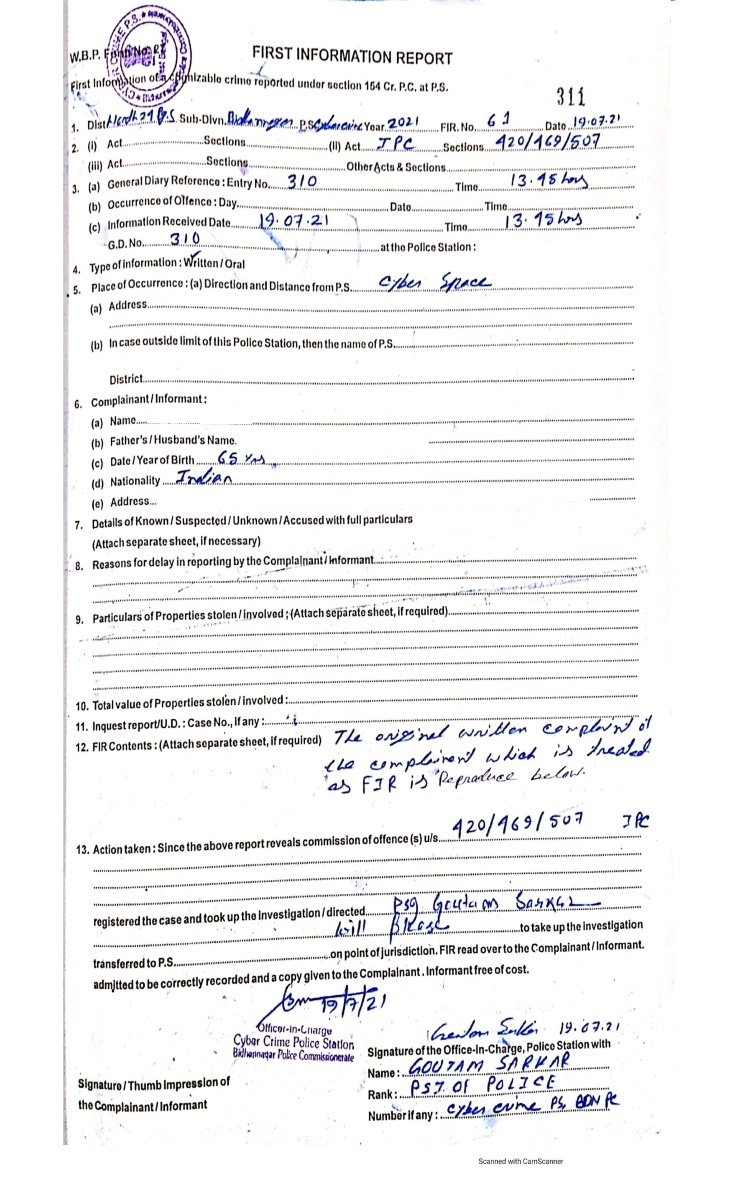 W.B.P. Form No. 27
FIRST INFORMATION REPORT
First Information of a cognizable crime reported under section 154 Cr. P.C. at P.S.
311
1. Dist. North 24 P.G.S Sub-Divn. Bidhannagar P.S. Cybercrime Year 2021 FIR. No. 61 Date 19.07.21
2. (i) Act Sections (ii) Act IPC Sections 420/469/507
(iii) Act Sections Other Acts & Sections
3. (a) General Diary Reference : Entry No. 310 Time 13.45 hrs
(b) Occurrence of Offence : Day Date Time
(c) Information Received Date 19.07.21 Time 13.45 hrs
G.D. No. 310 at the Police Station :
4. Type of information : Written / Oral
5. Place of Occurrence : (a) Direction and Distance from P.S. Cyber Space
(a) Address
(b) In case outside limit of this Police Station, then the name of P.S.
District
6. Complainant / Informant :
(a) Name
(b) Father's / Husband's Name.
(c) Date / Year of Birth 65 yrs
(d) Nationality Indian
(e) Address...
7. Details of Known / Suspected / Unknown / Accused with full particulars
(Attach separate sheet, if necessary)
8. Reasons for delay in reporting by the Complainant / Informant
9. Particulars of Properties stolen / involved ; (Attach separate sheet, if required)
10. Total value of Properties stolen / involved :
11. Inquest report/U.D. : Case No., If any :
12. FIR Contents : (Attach separate sheet, if required) The original written complaint of
the complainent which is treated
as FIR is Reproduce below.
13. Action taken : Since the above report reveals commission of offence (s) u/s. 420/469/507 IPC
registered the case and took up the Investigation / directed PSI Goutam Sarkar
will please to take up the investigation
transferred to P.S. on point of jurisdiction. FIR read over to the Complainant / Informant.
admitted to be correctly recorded and a copy given to the Complainant. Informant free of cost.
19/7/21
Officer-in-Charge
Cyber Crime Police Station
Bidhannagar Police Commissionerate
Goutam Sarkar 19.07.21
Signature of the Office-In-Charge, Police Station with
Name : GOUTAM SARKAR
Rank : PSI OF POLICE
Number if any : Cyber crime PS, BDN PC
Signature / Thumb Impression of
the Complainant / Informant
Scanned with CamScanner